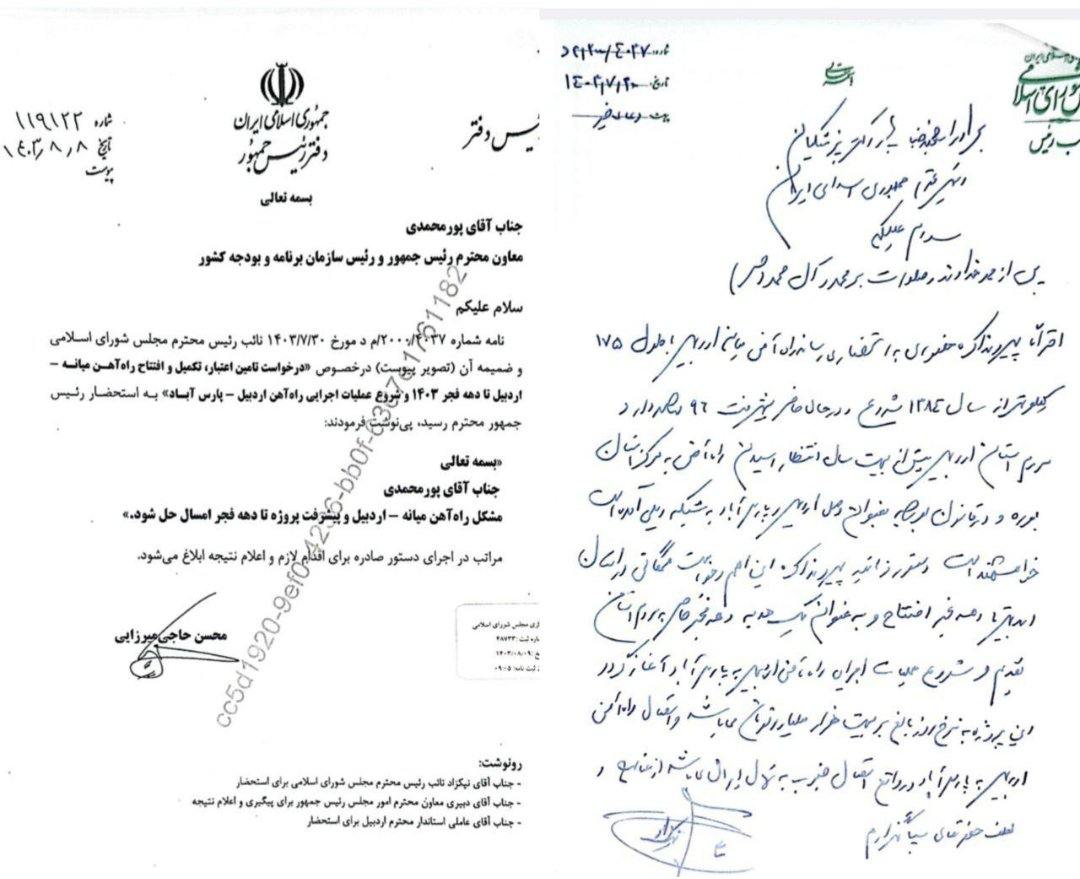 جمهوری اسلامی ایران
دفتر رئیس جمهور
ئیس دفتر
شماره ۱۱۹۱۲۲
تاریخ ۱۴۰۳/۸/۸
پیوست
بسمه تعالی
جناب آقای پورمحمدی
معاون محترم رئیس جمهور و رئیس سازمان برنامه و بودجه کشور
سلام علیکم
نامه شماره ۲۰۰۰/۴۰۳۷/م د مورخ ۱۴۰۳/۷/۳۰ نائب رئیس محترم مجلس شورای اسلامی
و ضمیمه آن (تصویر پیوست) درخصوص «درخواست تامین اعتبار، تکمیل و افتتاح راه‌آهن میانه –
اردبیل تا دهه فجر ۱۴۰۳ و شروع عملیات اجرایی راه‌آهن اردبیل – پارس آباد» به استحضار رئیس
جمهور محترم رسید، پی‌نوشت فرمودند:
«بسمه تعالی
جناب آقای پورمحمدی
مشکل راه‌آهن میانه – اردبیل و پیشرفت پروژه تا دهه فجر امسال حل شود.»
مراتب در اجرای دستور صادره برای اقدام لازم و اعلام نتیجه ابلاغ می‌شود.
محسن حاجی‌میرزایی
مجلس شورای اسلامی
ثبت: ۴۸۷۳۳
۱۴۰۳/۰۸/۰۹
رونوشت:
- جناب آقای نیکزاد نائب رئیس محترم مجلس شورای اسلامی برای استحضار
- جناب آقای دبیری معاون محترم امور مجلس رئیس جمهور برای پیگیری و اعلام نتیجه
- جناب آقای عاملی استاندار محترم اردبیل برای استحضار
شماره
تاریخ ۱۴۰۳/۷/۳۰
برادر ارجمند جناب آقای دکتر پزشکیان
رئیس محترم جمهوری اسلامی ایران
سلام علیکم
پس از حمد خداوند و صلوات بر محمد و آل محمد (ص)
احتراماً پیرو مذاکره حضوری به استحضار می‌رساند راه آهن میانه اردبیل بطول ۱۷۵
کیلومتر از سال ۱۳۸۴ شروع و در حال حاضر پیشرفت ۹۶ درصد دارد
مردم استان اردبیل بیش از بیست سال انتظار رسیدن راه آهن به مرکز استان
بوده و در قانون بودجه بعنوان وصل اردبیل و پارس آباد به شبکه ریلی آمده است
خواهشمند است دستور فرمائید پیرو مذاکره این امر
اردبیل تا دهه فجر افتتاح و به عنوان یک هدیه به مردم استان
تقدیم و شروع عملیات اجرایی راه آهن اردبیل به پارس آباد آغاز گردد
این پروژه به نرخ روز بالغ بر بیست هزار میلیارد تومان می‌باشد و اتصال راه آهن
اردبیل به پارس آباد در واقع اتصال جنوب به شمال ایران می‌باشد از عنایت و
لطف حضرتعالی سپاسگزارم